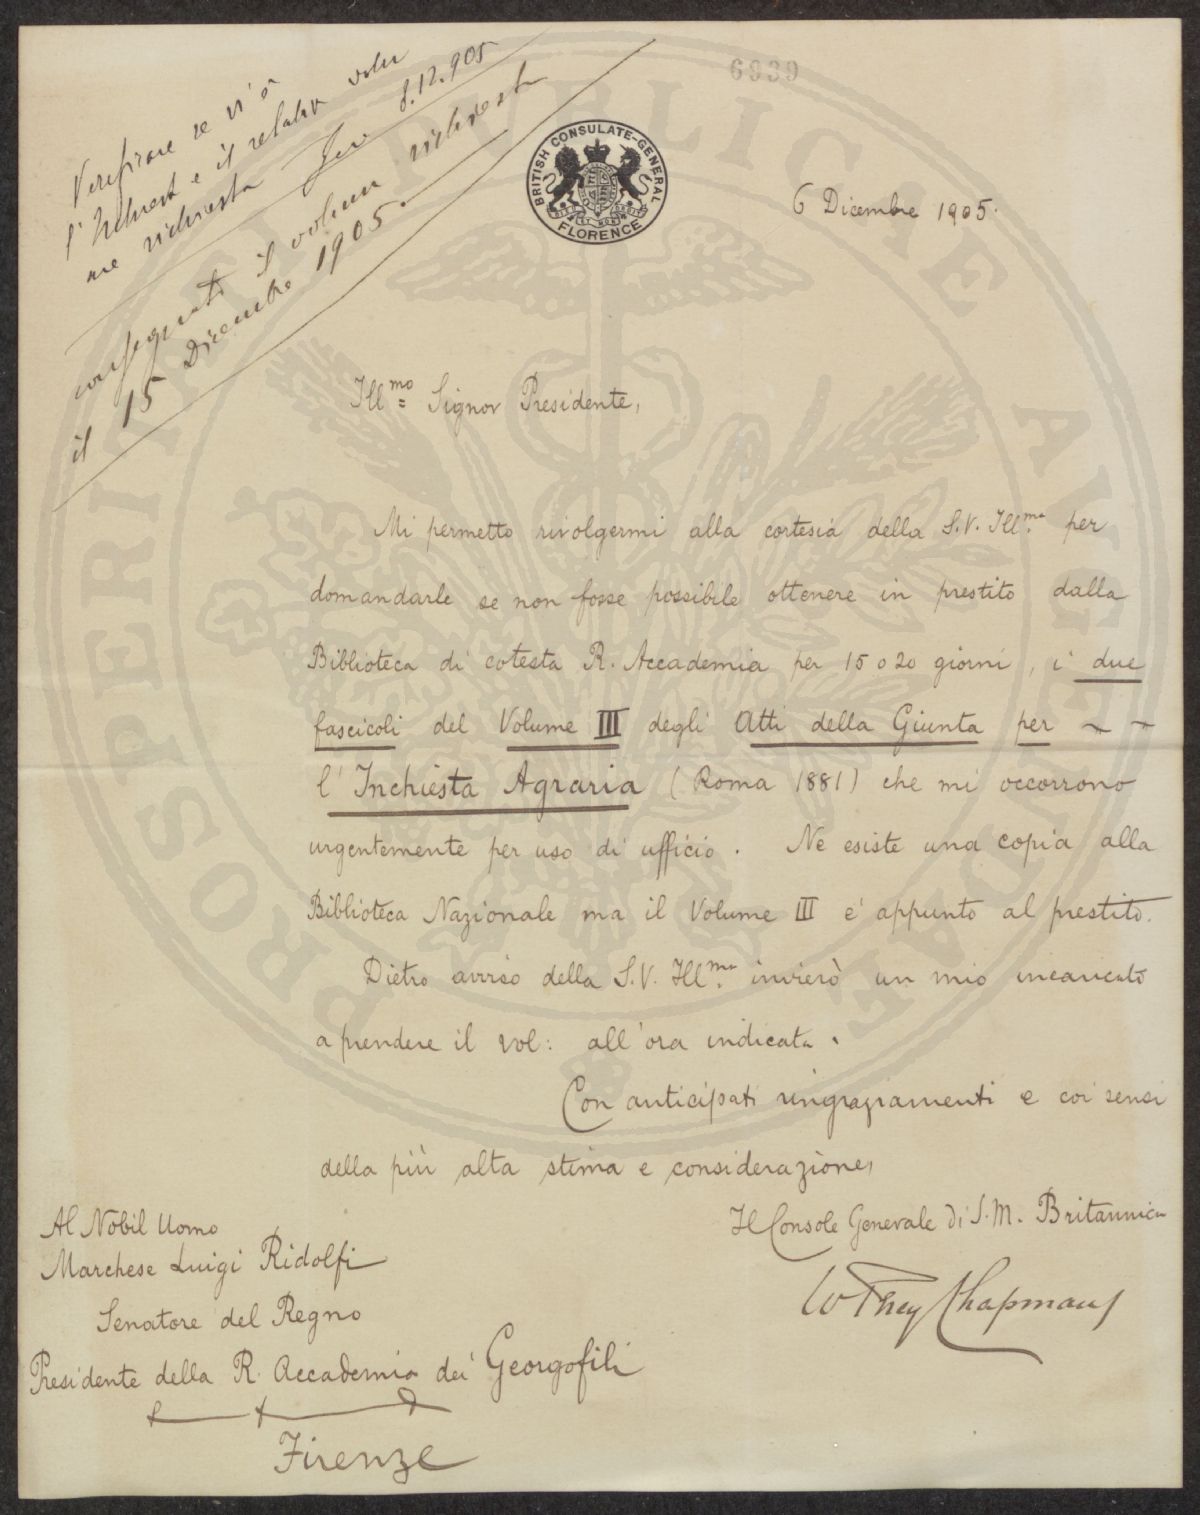 6939
Verificare se vi è
l' Inchiest e il relativo volu
me richiesta 8.12.905
consegnato il volum richiesto
il 15 Dicembre 1905.
BRITISH CONSULATE-GENERAL
FLORENCE
6 Dicembre 1905.
Ill.mo Signor Presidente,
Mi permetto rivolgermi alla cortesia della S.V. Ill.ma per
domandarle se non fosse possibile ottenere in prestito dalla
Biblioteca di cotesta R. Accademia per 15 o 20 giorni, i due
fascicoli del Volume III degli Atti della Giunta per
l'Inchiesta Agraria (Roma 1881) che mi occorrono
urgentemente per uso di ufficio. Ne esiste una copia alla
Biblioteca Nazionale ma il Volume III e' appunto al prestito.
Dietro avviso della S.V. Ill.ma invierò un mio incaricato
a prendere il vol: all'ora indicata.
Con anticipati ringraziamenti e coi sensi
della più alta stima e considerazione,
Il Console Generale di S.M. Britannica
Chapman
Al Nobil Uomo
Marchese Luigi Ridolfi
Senatore del Regno
Presidente della R. Accademia dei Georgofili
Firenze
PROSPERITATI PUBLICAE AUGENDAE